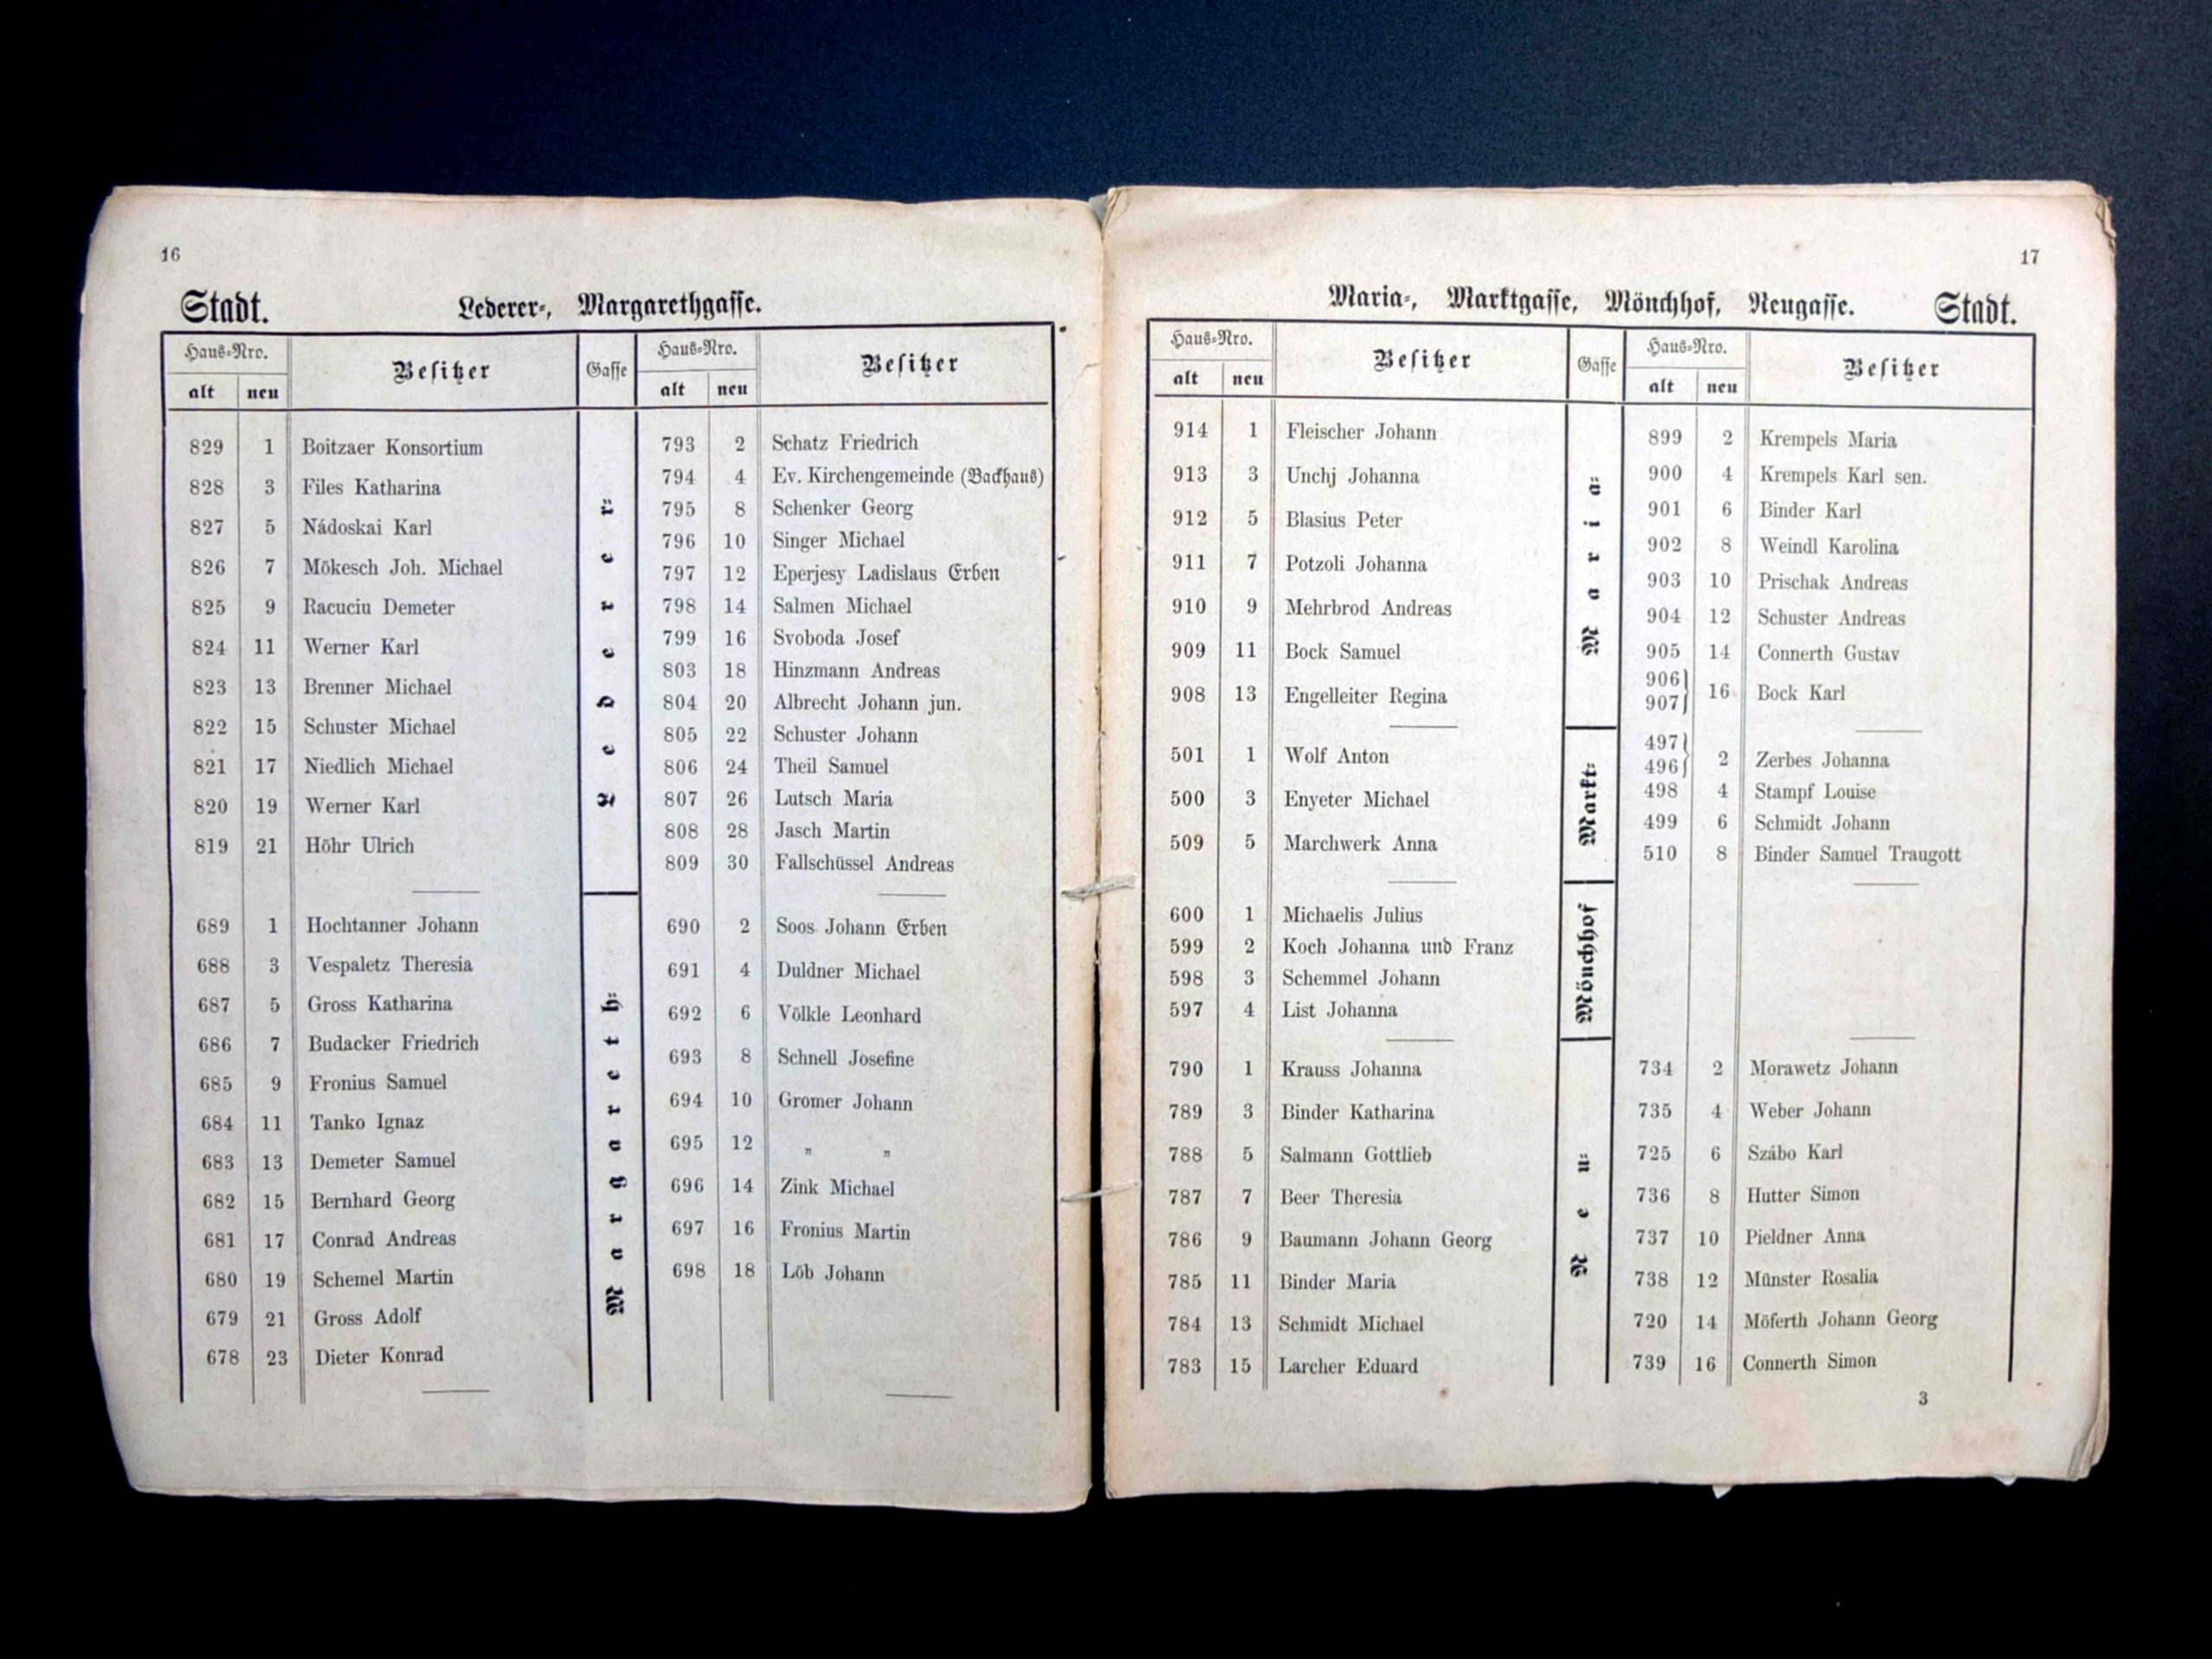 16
Stadt. Lederer-, Margarethgasse.
Haus-Nro. Besitzer Gasse Haus-Nro. Besitzer
alt neu alt neu
829 1 Boitzaer Konsortium
828 3 Files Katharina
827 5 Nádoskai Karl
826 7 Mökesch Joh. Michael
825 9 Racuciu Demeter
824 11 Werner Karl
823 13 Brenner Michael
822 15 Schuster Michael
821 17 Niedlich Michael
820 19 Werner Karl
819 21 Höhr Ulrich
Lederer-
793 2 Schatz Friedrich
794 4 Ev. Kirchengemeinde (Backhaus)
795 8 Schenker Georg
796 10 Singer Michael
797 12 Eperjesy Ladislaus Erben
798 14 Salmen Michael
799 16 Svoboda Josef
803 18 Hinzmann Andreas
804 20 Albrecht Johann jun.
805 22 Schuster Johann
806 24 Theil Samuel
807 26 Lutsch Maria
808 28 Jasch Martin
809 30 Fallschüssel Andreas
689 1 Hochtanner Johann
688 3 Vespaletz Theresia
687 5 Gross Katharina
686 7 Budacker Friedrich
685 9 Fronius Samuel
684 11 Tanko Ignaz
683 13 Demeter Samuel
682 15 Bernhard Georg
681 17 Conrad Andreas
680 19 Schemel Martin
679 21 Gross Adolf
678 23 Dieter Konrad
Margareth-
690 2 Soos Johann Erben
691 4 Duldner Michael
692 6 Völkle Leonhard
693 8 Schnell Josefine
694 10 Gromer Johann
695 12 „ „
696 14 Zink Michael
697 16 Fronius Martin
698 18 Löb Johann
17
Maria-, Marktgasse, Mönchhof, Neugasse. Stadt.
Haus-Nro. Besitzer Gasse Haus-Nro. Besitzer
alt neu alt neu
914 1 Fleischer Johann
913 3 Unchj Johanna
912 5 Blasius Peter
911 7 Potzoli Johanna
910 9 Mehrbrod Andreas
909 11 Bock Samuel
908 13 Engelleiter Regina
Maria-
899 2 Krempels Maria
900 4 Krempels Karl sen.
901 6 Binder Karl
902 8 Weindl Karolina
903 10 Prischak Andreas
904 12 Schuster Andreas
905 14 Connerth Gustav
906}
907} 16 Bock Karl
501 1 Wolf Anton
500 3 Enyeter Michael
509 5 Marchwerk Anna
Markt-
497}
496} 2 Zerbes Johanna
498 4 Stampf Louise
499 6 Schmidt Johann
510 8 Binder Samuel Traugott
600 1 Michaelis Julius
599 2 Koch Johanna und Franz
598 3 Schemmel Johann
597 4 List Johanna
Mönchhof
790 1 Krauss Johanna
789 3 Binder Katharina
788 5 Salmann Gottlieb
787 7 Beer Theresia
786 9 Baumann Johann Georg
785 11 Binder Maria
784 13 Schmidt Michael
783 15 Larcher Eduard
Neu-
734 2 Morawetz Johann
735 4 Weber Johann
725 6 Szábo Karl
736 8 Hutter Simon
737 10 Pieldner Anna
738 12 Münster Rosalia
720 14 Möferth Johann Georg
739 16 Connerth Simon
3